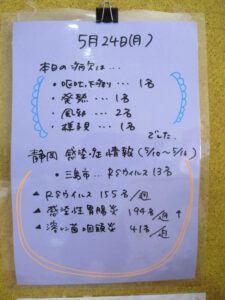 5月24日(月)
本日の病欠は…
・嘔吐,下痢り…1名
・発熱…1名
・風邪…2名
・様子見…1名
でした。
静岡 感染症情報 (5/10~5/16)
・三島市..RSウイルス 13名
▲RSウイルス 155名/週
▲感染性胃腸炎 194名/週↑
▲溶レン菌咽頭炎 41名/週